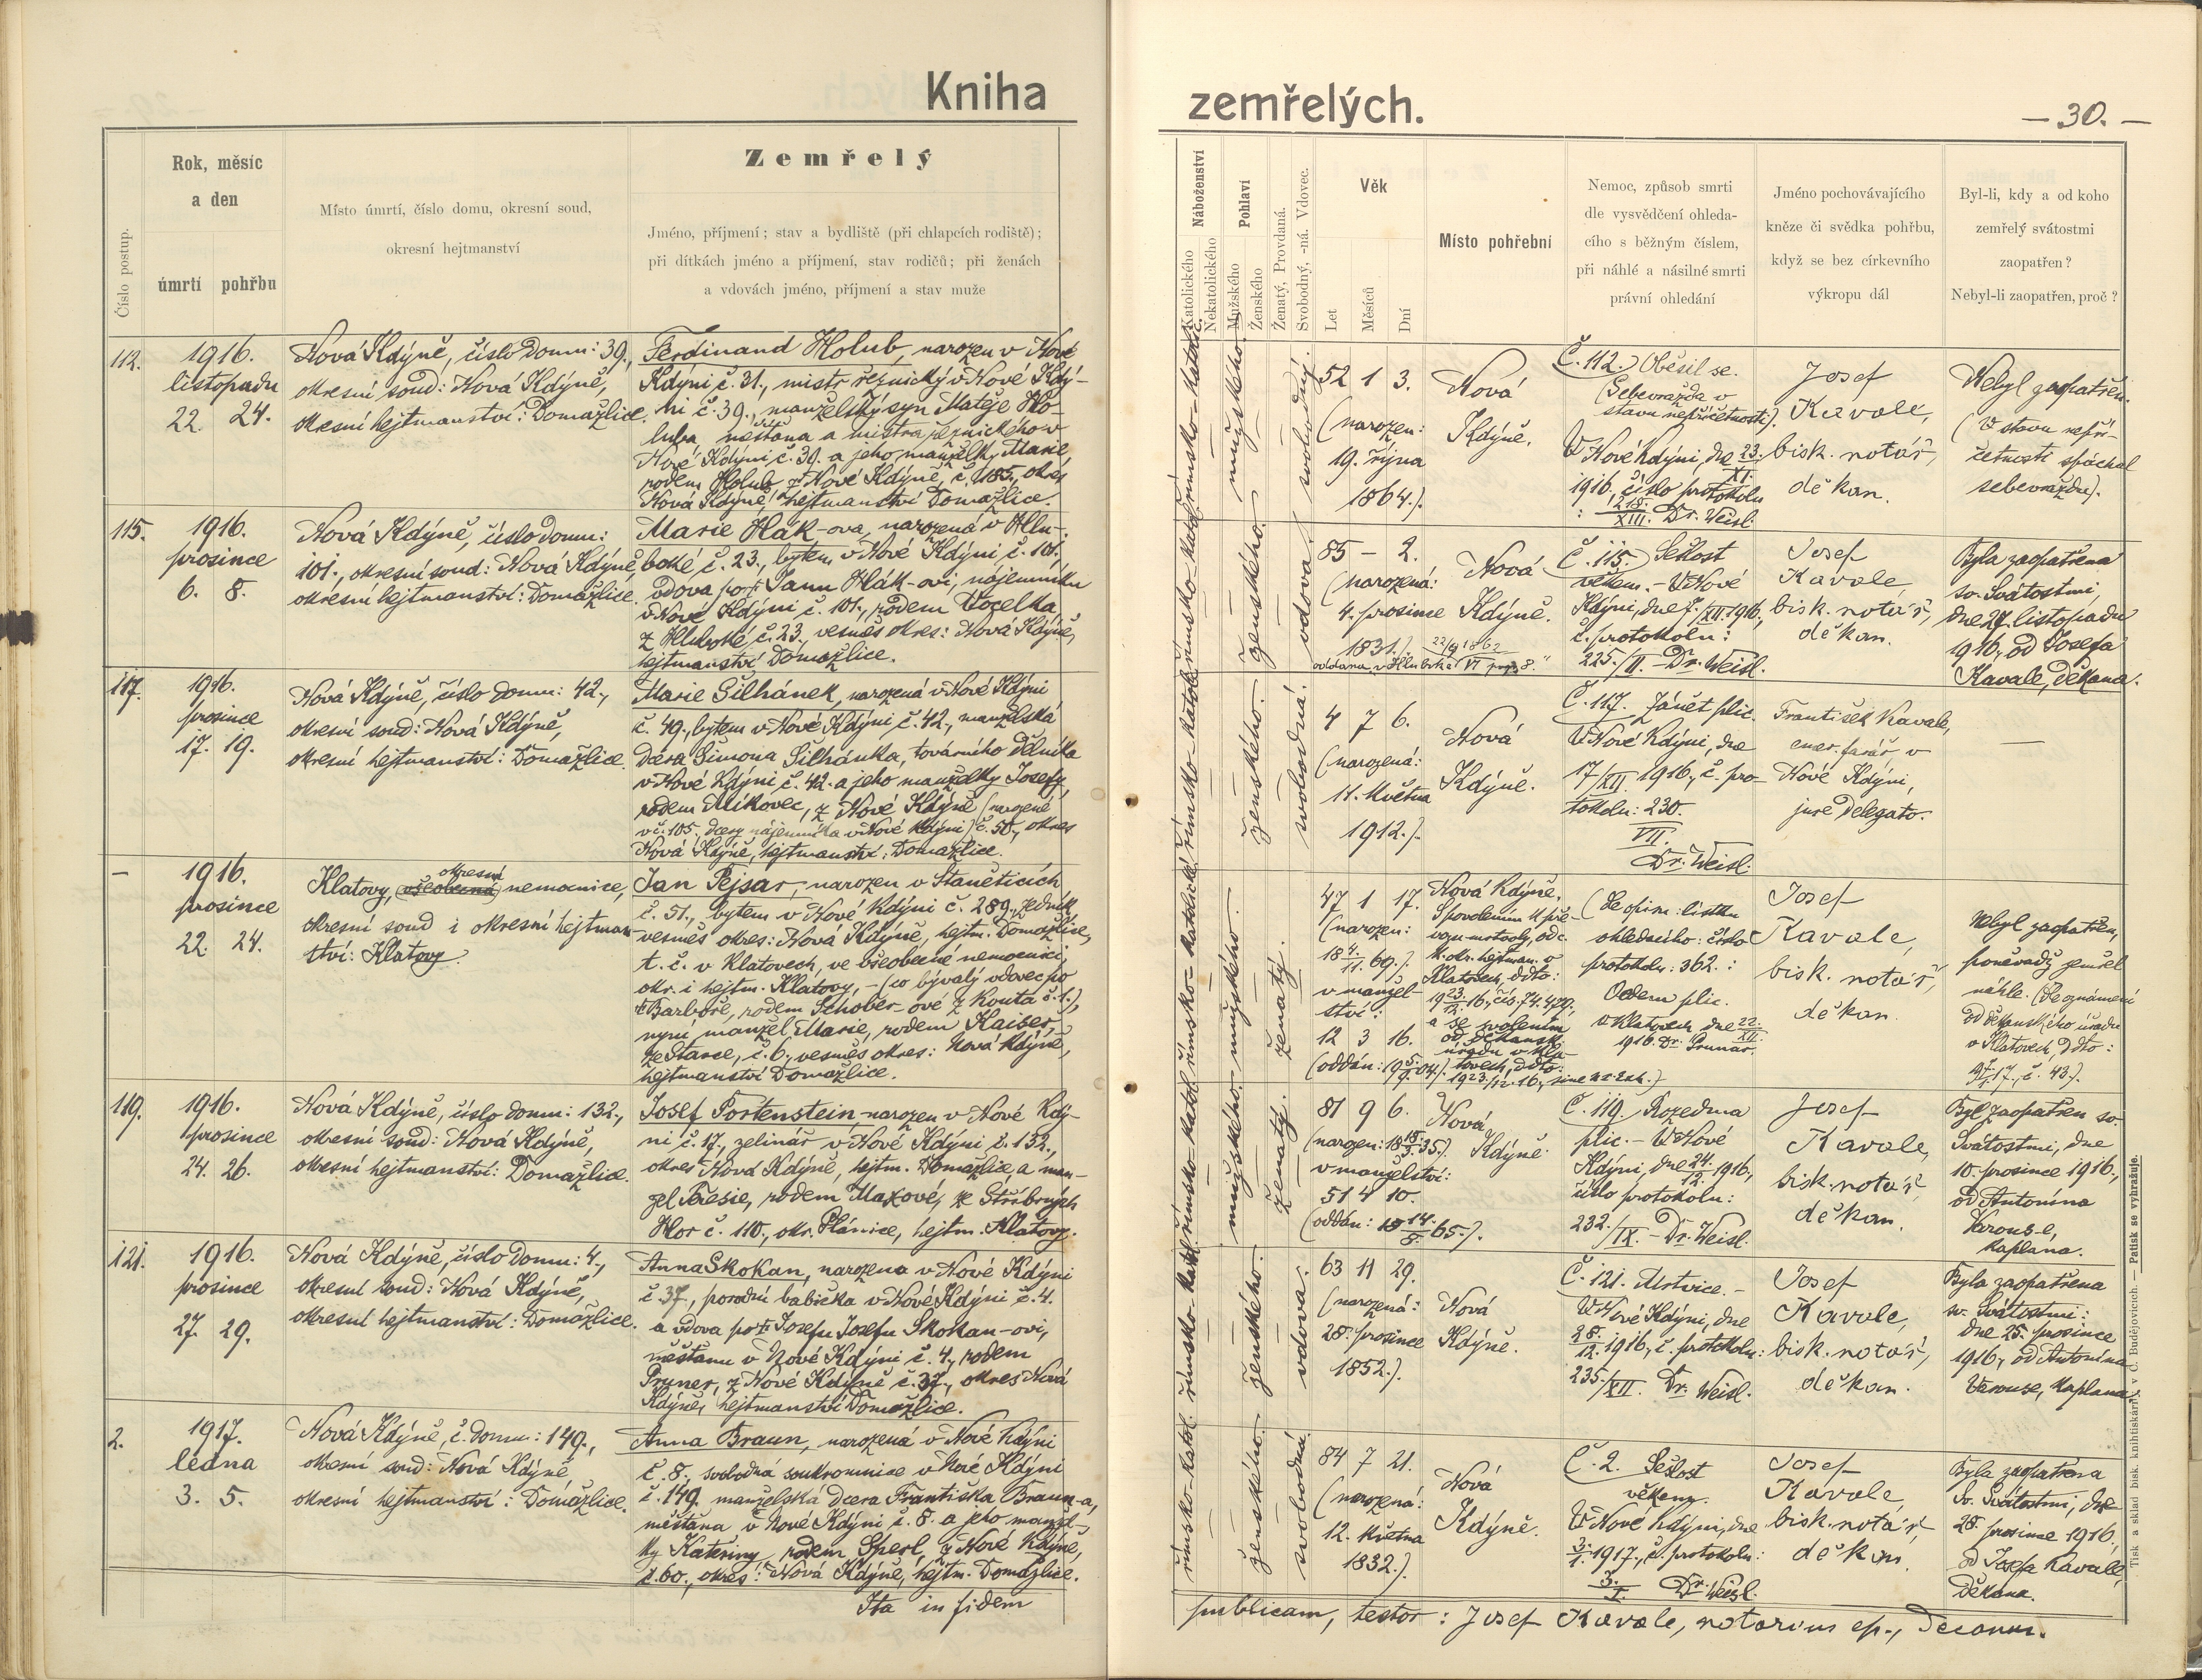 Kniha
zemřelých.
— 30. —
Číslo postup.
Rok, měsíc
a den
úmrtí pohřbu
Místo úmrtí, číslo domu, okresní soud,
okresní hejtmanství
Zemřelý
Jméno, příjmení; stav a bydliště (při chlapcích rodiště);
při dítkách jméno a příjmení, stav rodičů; při ženách
a vdovách jméno, příjmení a stav muže
Náboženství
Katolického
Nekatolického
Pohlaví
Mužského
Ženského
Ženatý, Provdaná.
Svobodný, -ná. Vdovec.
Věk
Let
Měsíců
Dní
Místo pohřební
Nemoc, způsob smrti
dle vysvědčení ohleda-
cího s běžným číslem,
při náhlé a násilné smrti
právní ohledání
Jméno pochovávajícího
kněze či svědka pohřbu,
když se bez církevního
výkropu dál
Byl-li, kdy a od koho
zemřelý svátostmi
zaopatřen?
Nebyl-li zaopatřen, proč?
112.
1916.
listopadu
22. 24.
Nová Kdýně, číslo domu: 39.,
okresní soud: Nová Kdýně,
okresní hejtmanství: Domažlice.
Ferdinand Holub, narozen v Nové
Kdýni č. 31., mistr řeznický v Nové Kdý-
ni č. 39., manželský syn Matěje Ho-
luba, měšťana a mistra řeznického v
Nové Kdýni č. 39. a jeho manželky Marie
rodem Holub z Nové Kdýně, č. 185., okres
Nová Kdýně, hejtmanství Domažlice.
římsko-katolic.
mužského.
svobodný.
52 1 3.
(narozen:
19. října
1864.).
Nová
Kdýně.
Č. 112. Oběsil se.
(Sebevražda v
stavu nepříčetnosti).
V Nové Kdýni, dne 23./XI.
1916. číslo protokolu
: 218./XIII. Dr. Weisl.
Josef
Kavale,
bisk. notář,
děkan.
Nebyl zaopatřen.
(V stavu nepří-
četnosti spáchal
sebevraždu).
115.
1916.
prosince
6. 8.
Nová Kdýně, číslo domu:
101., okresní soud: Nová Kdýně,
okresní hejtmanství: Domažlice.
Marie Hák-ova, narozená v Hlu-
boké č. 23., bytem v Nové Kdýni č. 101.,
vdova po † Janu Hák-ovi, nájemníku
v Nové Kdýni č. 101., rodem Vocelka
z Hluboké č. 23., vesměs okres: Nová Kdýně,
hejtmanství Domažlice.
ženského.
vdova.
85 – 2.
(narozená:
4. prosince
1831.).
Nová
Kdýně.
Č. 115. Sešlost
věkem. – V Nové
Kdýni, dne 7./XII. 1916.,
č. protokolu:
225./II. – Dr. Weisl.
Josef
Kavale
bisk. notář,
děkan.
Byla zaopatřena
sv. Svátostmi,
dne 27. listopadu
1916, od Josefa
Kavale, děkana.
117.
1916.
prosince
17. 19.
Nová Kdýně, číslo domu: 42.,
okresní soud: Nová Kdýně,
okresní hejtmanství: Domažlice.
Marie Šilhánek, narozená v Nové Kdýni
č. 49., bytem v Nové Kdýni č. 42., manželská
dcera Šimona Šilhánka, továrního dělníka
v Nové Kdýni č. 42. a jeho manželky Josefy,
rodem Mikovec, z Nové Kdýně (narozené
v č. 105., dcery nájemníka v Nové Kdýni) č. 50., okres
Nová Kdýně, hejtmanství: Domažlice.
ženského.
svobodná.
4 7 6.
(narozená:
11. května
1912.).
Nová
Kdýně.
Č. 117. Zánět plic.
V Nové Kdýni, dne
17/XII. 1916., č. pro-
tokolu: 230./VII.
Dr. Weisl.
František Kavale,
emer. farář v
Nové Kdýni,
jure delegato.
—
–
1916.
prosince
22. 24.
okresní
Klatovy, (všeobecná) nemocnice,
okresní soud i okresní hejtman-
ství: Klatovy.
Jan Pejsar, narozen v Staněticích
č. 51., bytem v Nové Kdýni č. 289., zedník
vesměs okres: Nová Kdýně, hejtm. Domažlice,
t. č. v Klatovech, ve všeobecné nemocnici,
okr. i hejtm. Klatovy, – (co bývalý vdovec po
† Barboře, rodem Schober-ové z Kouta č. 1.),
nyní manžel Marie, rodem Kaiser,
ze Starce, č. 6., vesměs okres: Nová Kdýně,
hejtmanství Domažlice.
mužského.
ženatý.
47 1 17.
(narozen:
v manžel-
ství:
12 3 16.
Nová Kdýně.
(Dle opisu: lístku
ohledacího: číslo
protokolu: 362.:
Oedem plic.
v Klatovech dne 22./XII.
1916. Dr. Prunar.
Josef
Kavale,
bisk. notář,
děkan.
Nebyl zaopatřen,
poněvadž zemřel
náhle. (Dle oznámení
od děkanského úřadu
v Klatovech, ddto:
119.
1916.
prosince
24. 26.
Nová Kdýně, číslo domu: 132.,
okresní soud: Nová Kdýně,
okresní hejtmanství: Domažlice.
Josef Portenstein, narozen v Nové Kdý-
ni č. 17., zelinář v Nové Kdýni č. 132.,
okres Nová Kdýně, hejtm. Domažlice, a man-
žel Terezie, rodem Maxové, ze Stříbrných
Hor č. 110., okr. Plánice, hejtm. Klatovy.
mužského.
ženatý.
81 9 6.
v manželství:
51 4 10.
Nová
Kdýně.
Č. 119. Rozedma
plic. – V Nové
Kdýni, dne 24/12. 1916.,
číslo protokolu:
232./IX. – Dr. Weisl.
Josef
Kavale,
bisk. notář,
děkan.
Byl zaopatřen sv.
Svátostmi, dne
10. prosince 1916.,
od Antonína
Varouse,
kaplana.
121.
1916.
prosince
27. 29.
Nová Kdýně, číslo domu: 4.,
okresní soud: Nová Kdýně,
okresní hejtmanství: Domažlice.
Anna Skokan, narozena v Nové Kdýni
č. 37., porodní babička v Nové Kdýni č. 4.
a vdova po † Josefu Josefu Skokan-ovi,
měšťanu v Nové Kdýni č. 4., rodem
Pruner, z Nové Kdýně č. 37., okres Nová
Kdýně, hejtmanství Domažlice.
ženského.
vdova.
63 11 29.
(narozená:
28. prosince
1852.).
Nová
Kdýně.
Č. 121. Mrtvice. –
V Nové Kdýni, dne
28./12. 1916., č. protokolu:
235./XII. Dr. Weisl.
Josef
Kavale,
bisk. notář,
děkan.
Byla zaopatřena
sv. Svátostmi:
dne 25. prosince
1916., od Antonína
Varouse, kaplana.
2.
1917.
ledna
3. 5.
Nová Kdýně, č. domu: 149.,
okresní soud: Nová Kdýně,
okresní hejtmanství: Domažlice.
Anna Braun, narozená v Nové Kdýni
č. 8., svobodná soukromnice v Nové Kdýni
č. 149. manželská dcera Františka Braun-a,
měšťana v Nové Kdýni č. 8. a jeho manžel-
ky Kateřiny, rodem Šperl, z Nové Kdýně,
č. 60., okres: Nová Kdýně, hejtm. Domažlice.
římsko-katol.
ženského.
svobodná.
84 7 21.
(narozená:
12. května
1832.).
Nová
Kdýně.
Č. 2. Sešlost
věkem.
V Nové Kdýni, dne
3./1. 1917., č. protokolu:
3./I. Dr. Weisl.
Josef
Kavale,
bisk. notář,
děkan.
Byla zaopatřena
Sv. Svátostmi, dne
28. prosince 1916.
od Josefa Kavale,
děkana.
Ita in fidem
publicam, testor: Josef Kavale, notarius ep., decanus.
Tisk a sklad bisk. knihtiskárny v Č. Budějovicích. — Patisk se vyhražuje.